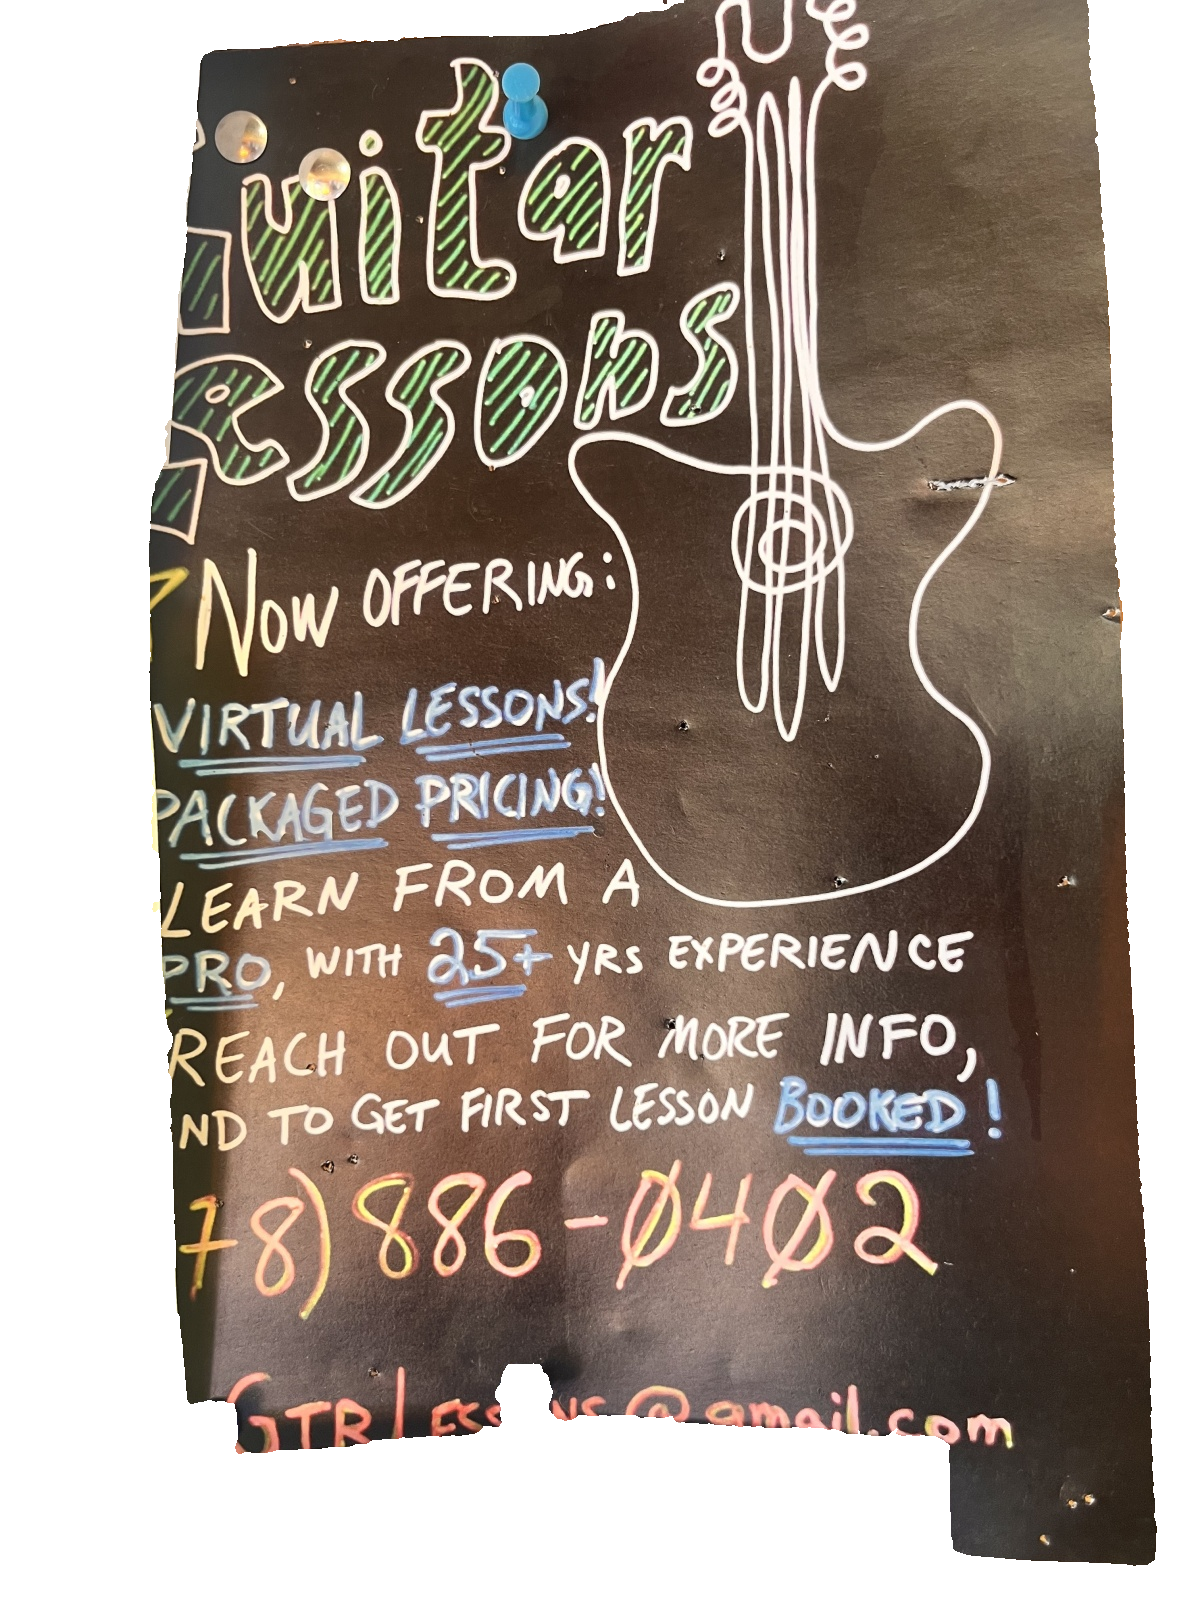 Guitar
Lessons
Now OFFERING:
VIRTUAL LESSONS!
PACKAGED PRICING!
LEARN FROM A
PRO, WITH 25+ YRS EXPERIENCE
REACH OUT FOR MORE INFO,
ND TO GET FIRST LESSON BOOKED!
78) 886-0402
@gmail.com